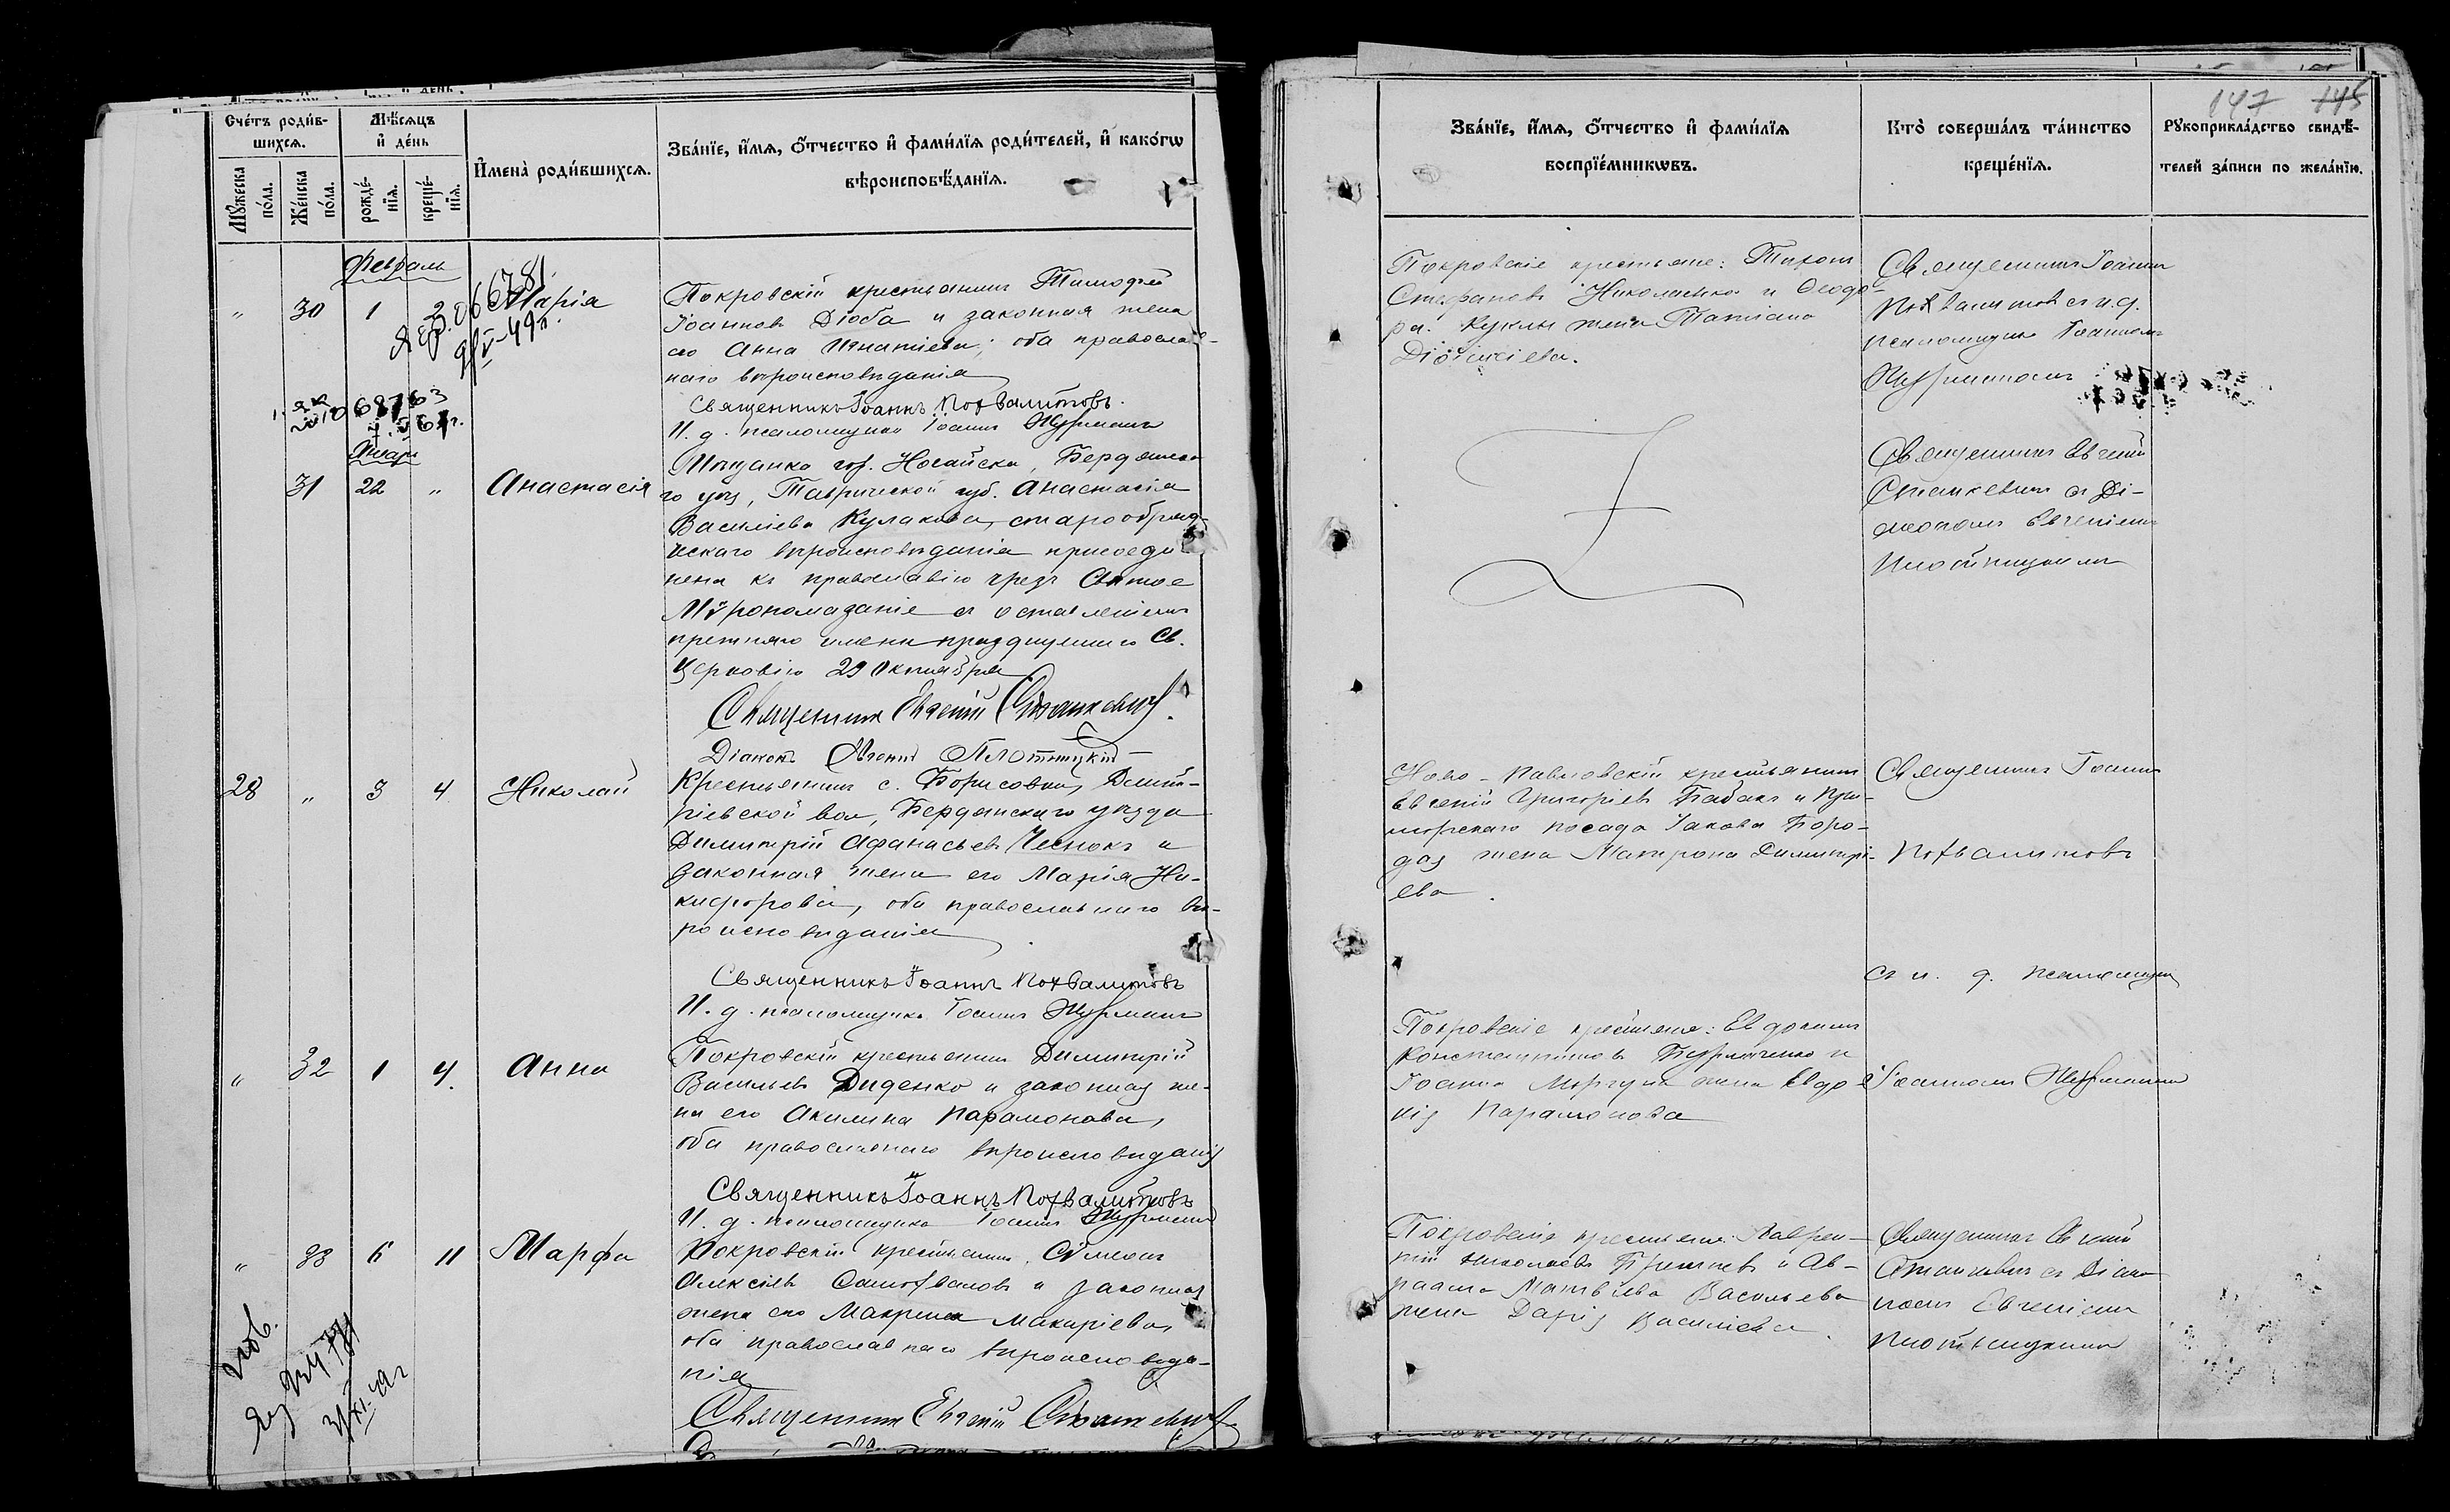 147 145
Счетъ родив-
шихся.
Мѣсяцъ
и день
Имена родившихся.
Званіе, имя, отчество и фамилія родителей, и какогѡ
вѣроисповѣданія.
Мужеска
пола.
Женска
пола.
рожде-
нія.
креще-
нія.
Февраль
" 30 1 2 Марія
Покровскій крестьянинъ Тимофей
Іоанновъ Дзюба и законная жена
его Анна Игнатіева; оба православ-
наго вѣроисповѣданія
Священникъ Іоаннъ Похвалитовъ.
И. д. псаломщика Іоаннъ
31 22 " Анастасія
Мѣщанка гор. Ногайска, Бердянска-
го уѣз., Таврической губ. Анастасія
Василіева Кулакова, старообряд-
ческаго вѣроисповѣданія присоеди-
нена къ православію чрезъ Святое
Мѵропомазаніе съ оставленіемъ
прежняго имени празднуемаго Св.
Церковію 29 Октября
Священникъ Евгеній Станкевичъ.
Діаконъ Евгеній Плотницкій
28 " 3 4 Николай
Крестьянинъ с. Борисовки, Дмит-
ріевской вол., Бердянскаго уѣзда
Димитрій Афанасьевъ Чеснокъ и
законная жена его Марія Ни-
кифорова, оба православнаго вѣ-
роисповѣданія
Священникъ Іоаннъ Похвалитовъ
И. д. псаломщика Іоаннъ
" 32 1 4. Анна
Покровскій крестьянинъ Димитрій
Васильевъ Диденко и законная же-
на его Акилина Парамонова,
оба православнаго вѣроисповѣданія
Священникъ Іоаннъ Похвалитовъ
И. д. псаломщика Іоаннъ
" 33 6 11 Марфа
Покровскій крестьянинъ Сѵмеонъ
Алексіевъ Самохваловъ и законная
жена его Макрина Макаріева,
оба православнаго вѣроисповѣда-
нія
Священникъ Евгеній Станкевичъ
Званіе, имя, отчество и фамилія
воспріемникѡвъ.
Кто совершалъ таинство
крещенія.
Рукоприкладство свидѣ-
телей записи по желанію.
Покровскіе крестьяне: Тихонъ
Стефановъ Николаенко и Ѳеодо-
ра Куклы жена Татіана
Діонисіева.
Священникъ Іоаннъ
Похвалитовъ съ и. д.
псаломщика Іоанномъ
Священникъ Евгеній
Станкевичъ съ Ді-
акономъ Евгеніемъ
Плотницкимъ
Ново-Павловскій крестьянинъ
Евгеній Григоріевъ Бабакъ и При-
морскаго посада Іакова Боро-
дая жена Матрона Димитрі-
ева.
Священникъ Іоаннъ
Похвалитовъ
съ и. д. псаломщика
Іоанномъ
Покровскіе крестьяне: Евдокимъ
Константиновъ и
Іоанна Моргуна жена Евдо-
кія Парамонова
Покровскіе крестьяне: Лаврен-
тій Николаевъ и Ав-
раама Матвѣева Васильева
жена Дарія Василіева.
Священникъ Евгеній
Станкевичъ съ Діако-
номъ Евгеніемъ
Плотницкимъ